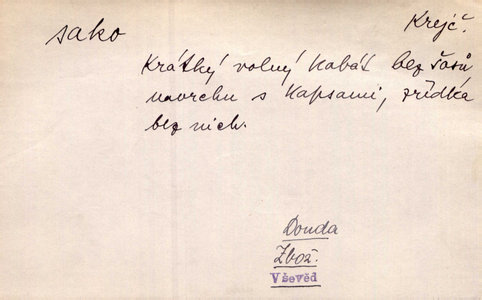 sako
Krejč.
Krátký volný kabát bez šosů
navrchu s kapsami, zřídka
bez nich.
Donda
Zbož.
Vševěd